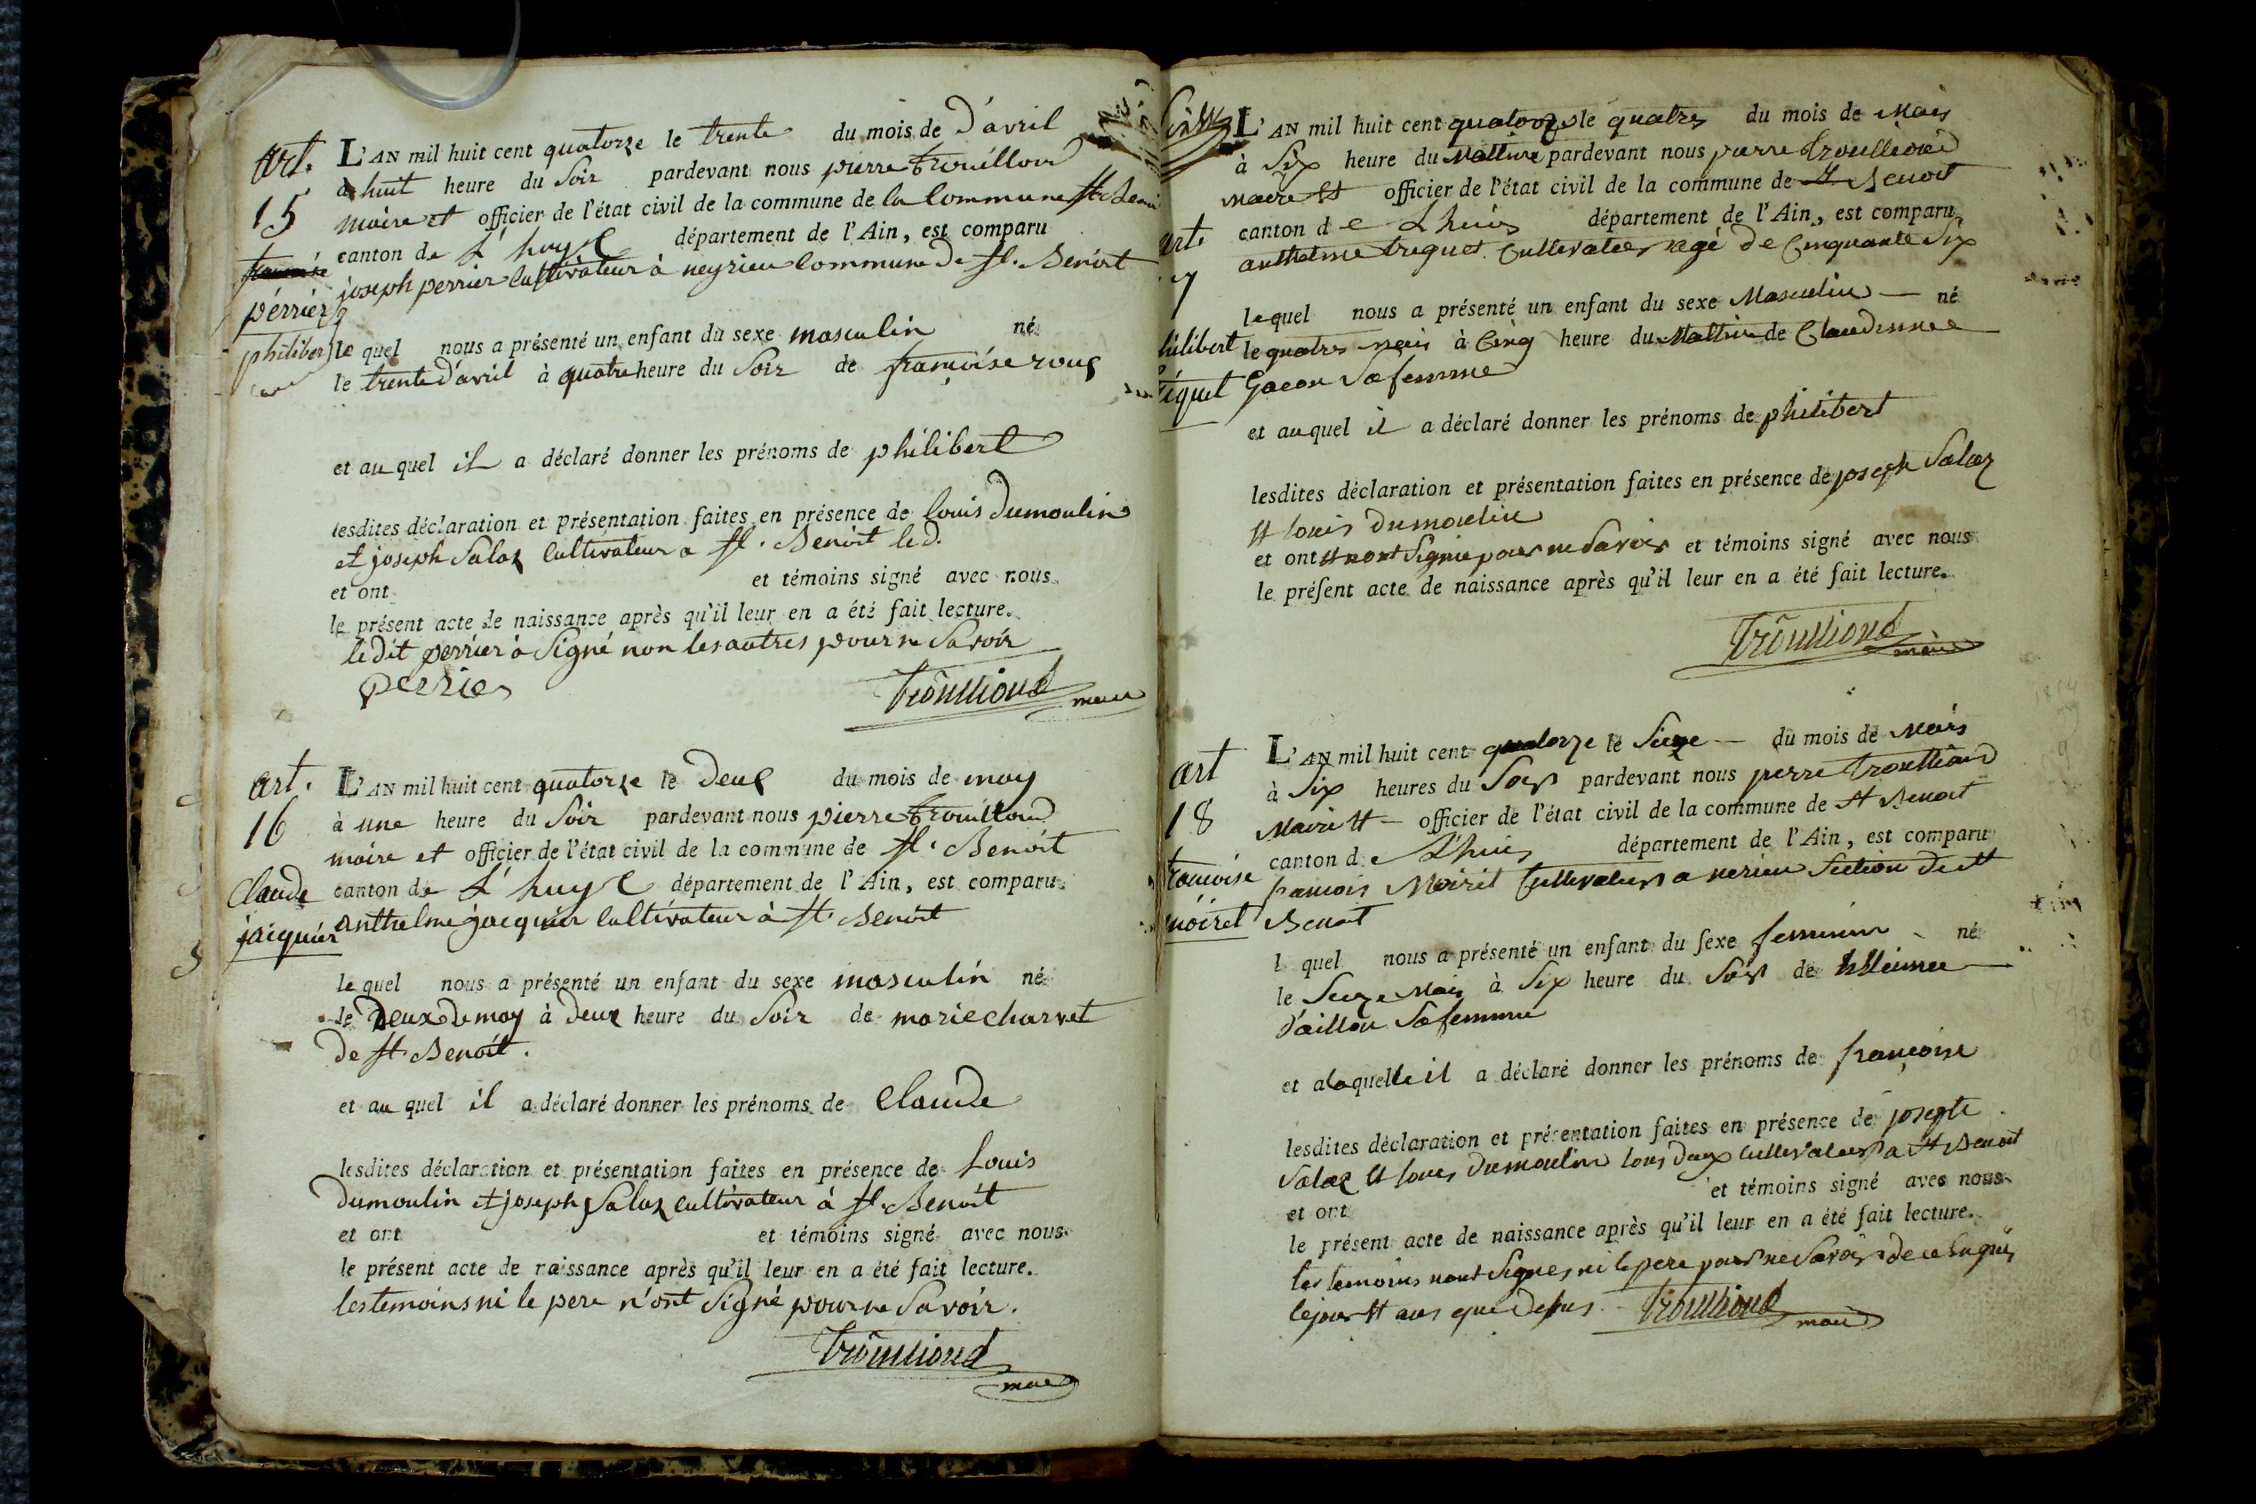 art.
15
françoise
périer
philibert
L'AN mil huit cent quatorze le trente du mois de d'avril
à huit heure du Soir pardevant nous pierre trouilloud
maire et officier de l'état civil de la commune de la Commune st. Benoit
canton de L'huys département de l'Ain, est comparu
joseph perrier Cultivateur à neyrieu Commune de st. Benoit
le quel nous a présenté un enfant du sexe masculin né
le trente d'avril à quatre heure du Soir de françoise roux
et au quel il a déclaré donner les prénoms de philibert
lesdites déclaration et présentation faites en présence de louis dumoulin
et joseph Salaz Cultivateur a st. Benoit led.
et ont et témoins signé avec nous
le présent acte de naissance après qu'il leur en a été fait lecture.
ledit perrier à Signé non les autres pour ne Savoir
perrier
Trouilloud maire
art.
16
Claude
jaiquier
L'AN mil huit cent quatorze le Deux du mois de may
à une heure du Soir pardevant nous pierre trouilloud
maire et officier de l'état civil de la commune de st. Benoit
canton de L'huys département de l'Ain, est comparu
anthelme jacquier Cultivateur à st. Benoit
le quel nous a présenté un enfant du sexe masculin né
le Deux de may à deux heure du Soir de marie charvet
de st. Benoit.
et au quel il a déclaré donner les prénoms de Claude
lesdites déclaration et présentation faites en présence de Louis
dumoulin et joseph Salaz cultivateur à st. Benoit
et ont et témoins signé avec nous
le présent acte de naissance après qu'il leur en a été fait lecture.
les temoins ni le pere n'ont Signé pour ne Savoir.
Trouilloud maire
art.
7
hilibert
iquet
L'AN mil huit cent quatorze le quatres du mois de Mais
à Six heure du Mattine pardevant nous pierre trouilloud
Maire et officier de l'état civil de la commune de st Benoit
canton de Lhuis département de l'Ain, est comparu
anthelme triquet Cultivateur agé de Cinquante Six
lequel nous a présenté un enfant du sexe Masculin né
le quatres mais à Cinq heure du Mattin de Claudinne
Gacon Sa femme
et au quel il a déclaré donner les prénoms de philibert
lesdites déclaration et présentation faites en présence de joseph Salaz
et louis dumoulin
et ont et nont Signie pour ne Savoir et témoins signé avec nous
le présent acte de naissance après qu'il leur en a été fait lecture.
Trouilloud maire
art
18
françoise
moiret
L'AN mil huit cent quatorze le Sieze du mois de Mais
à Six heures du Soir pardevant nous pierre trouilloud
Maire et officier de l'état civil de la commune de st Benoit
canton de L'huis département de l'Ain, est comparu
francois Moiret Cultivateur a nerieu Section de st
Benoit
l quel nous a présenté un enfant du sexe feminin né
le Sieze Mais à Six heure du Soir de
Daillon Sa femme
et a laquelle il a déclaré donner les prénoms de françoise
lesdites déclaration et présentation faites en présence de joseph
Salaz et louis dumoulin tous deux cultivateur a st Benoit
et ont et témoins signé avec nous
le présent acte de naissance après qu'il leur en a été fait lecture.
les temoins nont Signes ni le pere pour ne Savoir de ce
le jour et ans que desus. Trouilloud maire